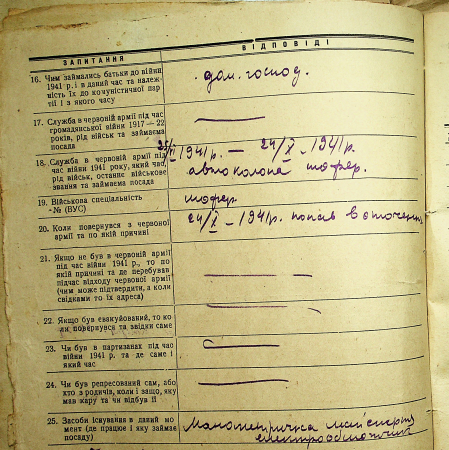 ЗАПИТАННЯ
ВІДПОВІДІ
16. Чим займались батьки до війни
1941 р. і в даний час та належ-
ність їх до комуністичної пар-
тії і з якого часу
дом. господ.
17. Служба в червоній армії під час
громадянської війни 1917—22
років, рід військ та займаєма
посада
18. Служба в червоній армії під
час війни 1941 року, який час,
рід військ, останнє військове
звання та займаєма посада
1941р. — 24/X - 1941р.
автоколона шофер.
19. Військова спеціальність
-№ (ВУС)
шофер
20. Коли повернувся з червоної
армії та по якій причині
24/X - 1941р. попав в оточення
21. Якщо не був в червоній армії
під час війни 1941 р., то по
якій причині та де перебував
підчас відходу червоної армії
(чим може підтвердити, а коли
свідками то їх адреса)
22. Якщо був евакуйований, то ко
ли повернувся та звідки саме
23. Чи був в партизанах під час
війни 1941 р. та де саме і
який час
24. Чи був репресований сам, або
хто з родичів, коли і защо, яку
мав кару та чи відбув її
25. Засоби існування в даний мо
мент (де працює і яку займає
посаду)